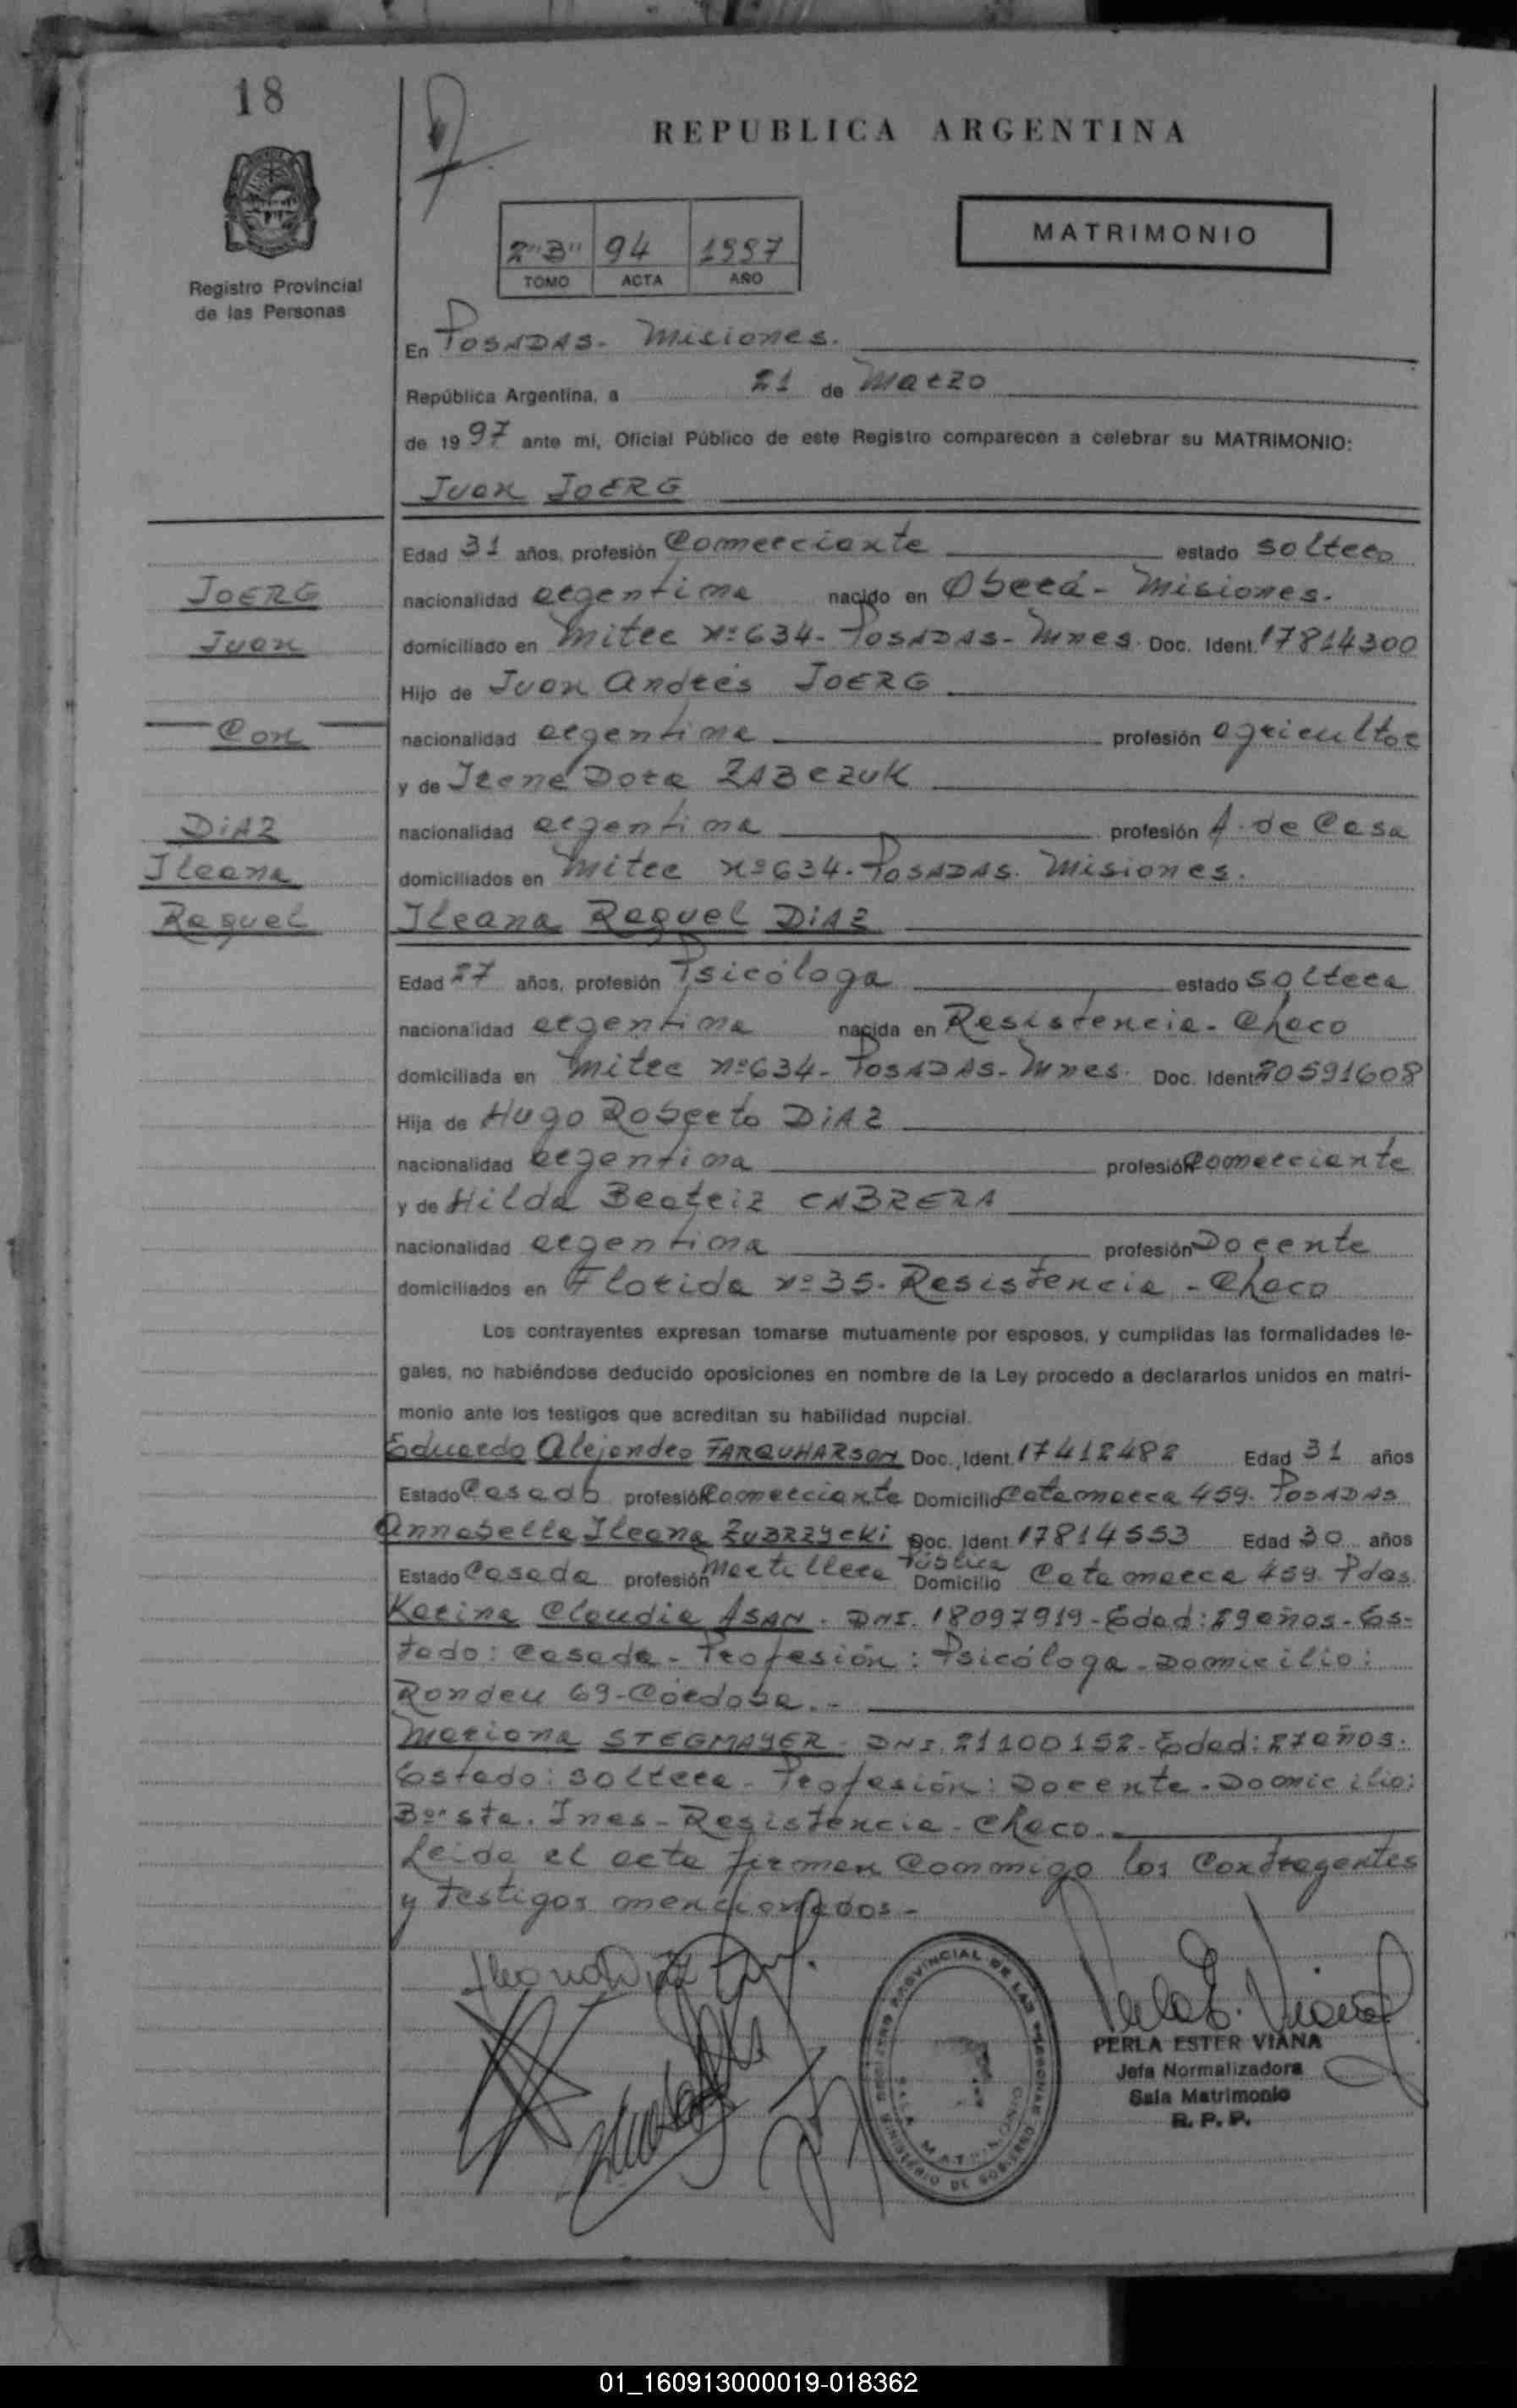 18
REPUBLICA ARGENTINA
MATRIMONIO
2"B" 94 1997
TOMO ACTA AÑO
Registro Provincial
de las Personas
En POSADAS - Misiones.
República Argentina, a 21 de Marzo
de 1997 ante mí, Oficial Público de este Registro comparecen a celebrar su MATRIMONIO:
Juan JOERG
Edad 31 años, profesión Comerciante estado soltero
JOERG
nacionalidad argentina nacido en Oberá - Misiones.
Juan
domiciliado en Mitre Nº 634 - POSADAS - Mnes. Doc. Ident. 17814300
Hijo de Juan Andrés JOERG
Con
nacionalidad argentina profesión agricultor
y de Irene Dora ZABCZUK
DIAZ
nacionalidad argentina profesión A. de Casa
Ileana
domiciliados en Mitre Nº 634 - POSADAS. Misiones.
Raquel
Ileana Raquel DIAZ
Edad 27 años, profesión Psicóloga estado soltera
nacionalidad argentina nacida en Resistencia - Chaco
domiciliada en Mitre Nº 634 - POSADAS - Mnes. Doc. Ident. 20591608
Hija de Hugo Roberto DIAZ
nacionalidad argentina profesión Comerciante
y de Hilda Beatriz CABRERA
nacionalidad argentina profesión Docente
domiciliados en Florida Nº 35 - Resistencia - Chaco
Los contrayentes expresan tomarse mutuamente por esposos, y cumplidas las formalidades le-
gales, no habiéndose deducido oposiciones en nombre de la Ley procedo a declararlos unidos en matri-
monio ante los testigos que acreditan su habilidad nupcial.
Eduardo Alejandro FARQUHARSON Doc. Ident. 17412482 Edad 31 años
Estado Casado profesión Comerciante Domicilio Catamarca 459. POSADAS
Annabella Ileana ZUBRZYCKI Doc. Ident. 17814553 Edad 30 años
Estado Casada profesión Martillera Pública Domicilio Catamarca 459. Pdas.
Karina Claudia ASAN - DNI. 18097919 - Edad: 29 años - Es-
tado: Casada - Profesión: Psicóloga - Domicilio:
Rondeu 69 - Córdoba. -
Mariana STEGMAYER - DNI. 21100152 - Edad: 27 años.
Estado: soltera - Profesión: Docente - Domicilio:
Bº Sta. Ines - Resistencia - Chaco.
Leida el acta firman conmigo los contrayentes
y testigos mencionados -
Ileana Diaz
REGISTRO PROVINCIAL DE LAS PERSONAS
SALA MATRIMONIO
MINISTERIO DE GOBIERNO
Perla E. Viana
PERLA ESTER VIANA
Jefa Normalizadora
Sala Matrimonio
R. P. P.
01_160913000019-018362